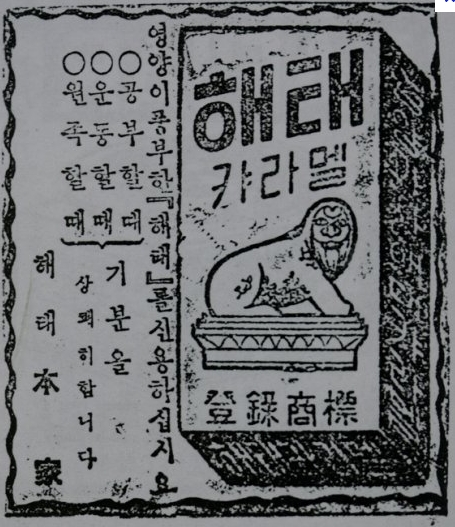 해태
캬라멜
登錄商標
영양이풍부한『해태』를신용하십시요
○공부할때
○운동할때
○원족할때
기분을
상쾌히합니다
해태本家